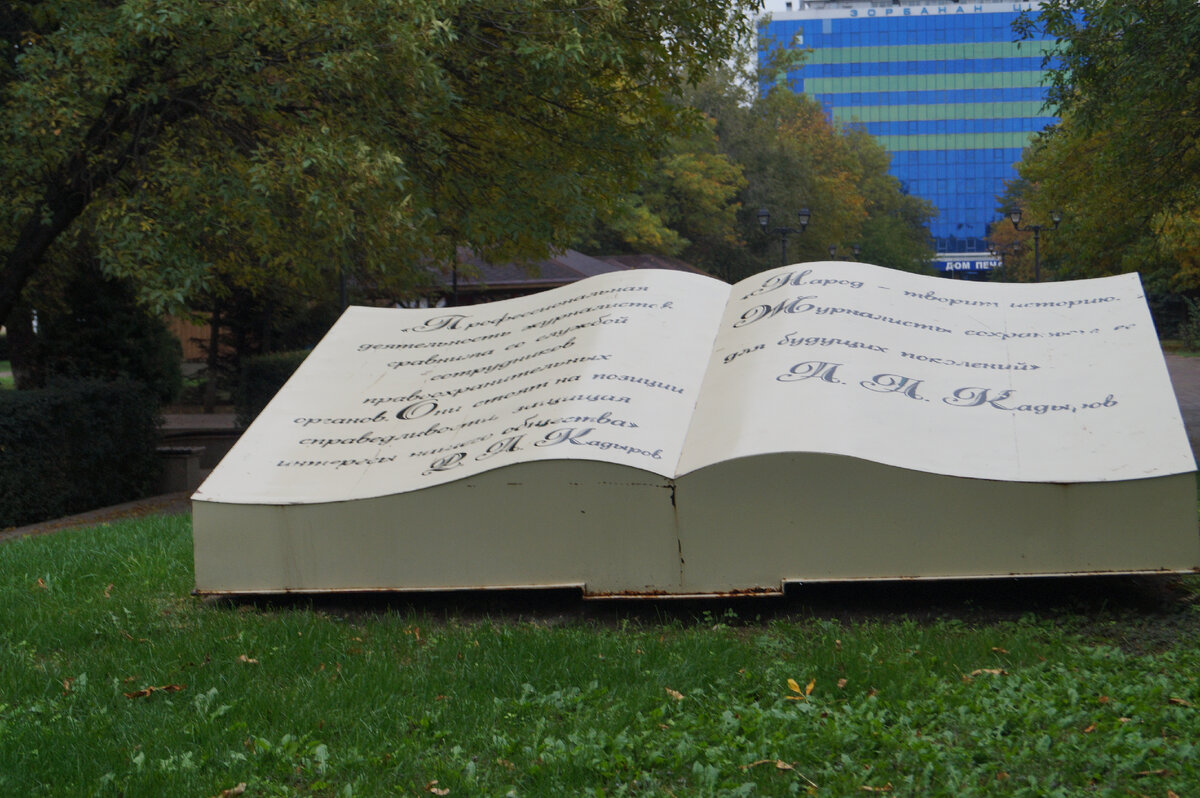 ЗОРБАНАН Ц
ДОМ ПЕЧ
«Профессиональная
деятельность журналистов
сравнима со службой
сотрудников
правоохранительных
органов. Они стоят на позиции
справедливости, защищая
интересы нашего общества»
Р. А. Кадыров.
«Народ - творит историю.
Журналисты сохраняют её
для будущих поколений».
А. А. Кадыров